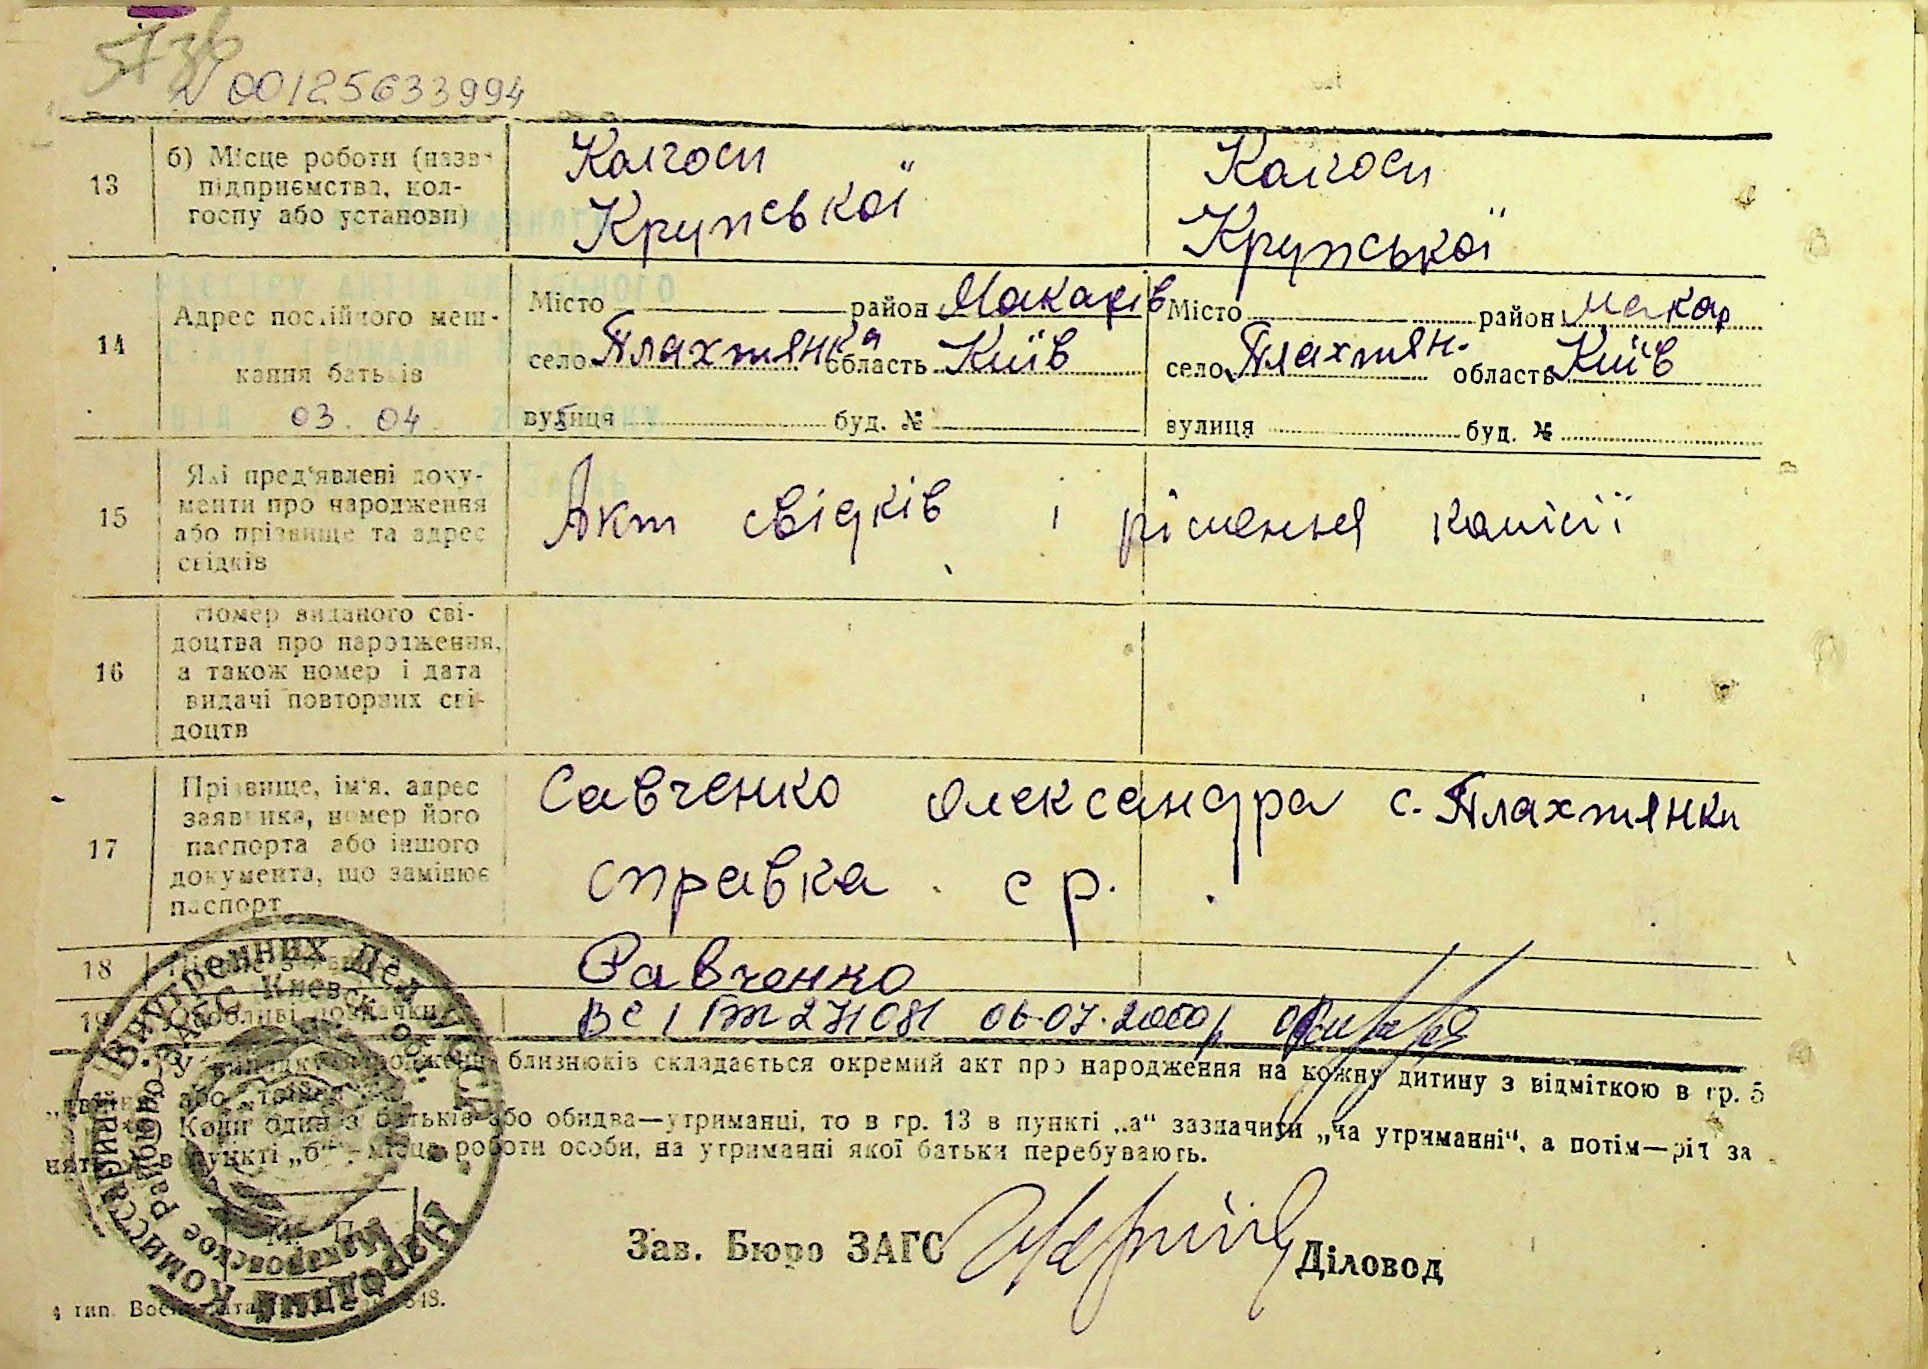 N 00125633994
13
б) Місце роботи (назва
підприємства, кол-
госпу або установи)
Колгосп
Крупської
Колгосп
Крупської
14
Адрес постійного меш-
кання батьків
03. 04.
Місто район Макарів
село Плахтянка область Київ
вулиця буд. №
Місто район Макар
село Плахтян. область Київ
вулиця буд. №
15
Які пред'явлені доку-
менти про народження
або прізвище та адрес
свідків
Акт свідків і рішення комісії
16
Номер виданого сві-
доцтва про народження,
а також номер і дата
видачі повторних сві-
доцтв
17
Прізвище, ім'я, адрес
заявника, номер його
паспорта або іншого
документа, що замінює
паспорт
Савченко Олександра с. Плахтянки
справка с р.
18
Савченко
19 Особливі позначки
06.07.2000р
близнюків складається окремий акт про народження на кожну дитину з відміткою в гр. 5
або „трійня“
Коли один з батьків або обидва—утриманці, то в гр. 13 в пункті „а“ зазначити „на утриманні“, а потім—рід за
пункті „б“ місце роботи особи, на утриманні якої батьки перебувають.
Народный Комиссариат Внутренних Дел УССР
Макаровское Районное ЗАГС Киевск обл.
М. П.
Зав. Бюро ЗАГС Діловод